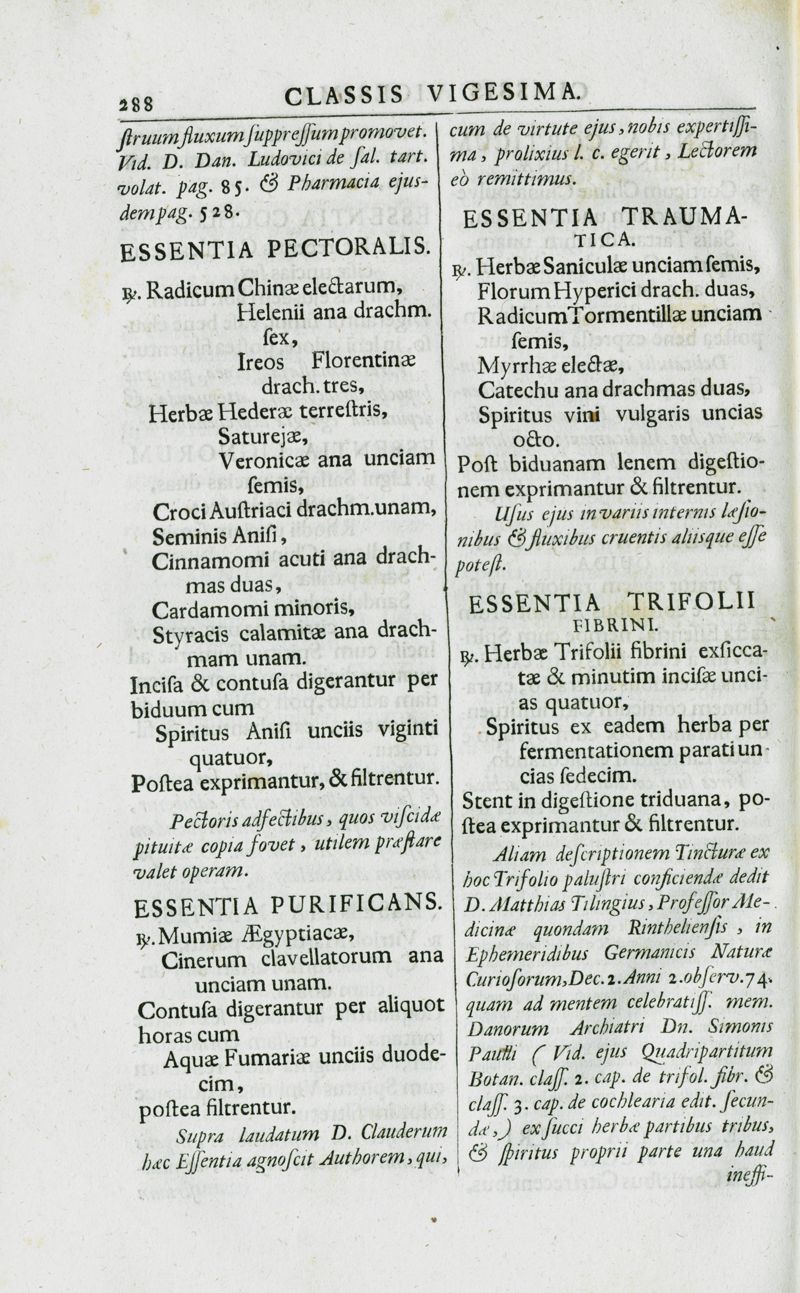 288
CLASSIS VIGESIMA.
ſtruum fluxum ſuppreſſum promovet.
Vid. D. Dan. Ludovici de ſal. tart.
volat. pag. 85. & Pharmacia ejus-
dem pag. 528.
ESSENTIA PECTORALIS.
℞. Radicum Chinæ electarum,
Helenii ana drachm.
ſex,
Ireos Florentinæ
drach. tres,
Herbæ Hederæ terreſtris,
Saturejæ,
Veronicæ ana unciam
ſemis,
Croci Auſtriaci drachm. unam,
Seminis Aniſi,
Cinnamomi acuti ana drach-
mas duas,
Cardamomi minoris,
Styracis calamitæ ana drach-
mam unam.
Inciſa & contuſa digerantur per
biduum cum
Spiritus Aniſi unciis viginti
quatuor,
Poſtea exprimantur, & filtrentur.
Pectoris adfectibus, quos viſcidæ
pituitæ copia fovet, utilem præſtare
valet operam.
ESSENTIA PURIFICANS.
℞. Mumiæ Ægyptiacæ,
Cinerum clavellatorum ana
unciam unam.
Contuſa digerantur per aliquot
horas cum
Aquæ Fumariæ unciis duode-
cim,
poſtea filtrentur.
Supra laudatum D. Clauderum
hæc Eſſentia agnoſcit Authorem, qui,
cum de virtute ejus, nobis expertiſſi-
ma, prolixius l. c. egerit, Lectorem
eò remittimus.
ESSENTIA TRAUMA-
TICA.
℞. Herbæ Saniculæ unciam ſemis,
Florum Hyperici drach. duas,
Radicum Tormentillæ unciam
ſemis,
Myrrhæ electæ,
Catechu ana drachmas duas,
Spiritus vini vulgaris uncias
octo.
Poſt biduanam lenem digeſtio-
nem exprimantur & filtrentur.
Uſus ejus in variis internis læſio-
nibus & fluxibus cruentis aliisque eſſe
poteſt.
ESSENTIA TRIFOLII
FIBRINI.
℞. Herbæ Trifolii fibrini exſicca-
tæ & minutim inciſæ unci-
as quatuor,
Spiritus ex eadem herba per
fermentationem parati un-
cias ſedecim.
Stent in digeſtione triduana, po-
ſtea exprimantur & filtrentur.
Aliam deſcriptionem Tincturæ ex
hoc Trifolio paluſtri conficiendæ dedit
D. Matthias Tilingius, Profeſſor Me-
dicinæ quondam Rinthelienſis, in
Ephemeridibus Germanicis Naturæ
Curioſorum, Dec. 2. Anni 2. obſerv. 74,
quam ad mentem celebratiſſ. mem.
Danorum Archiatri Dn. Simonis
Paulli ( Vid. ejus Quadripartitum
Botan. claſſ. 2. cap. de trifol. fibr. &
claſſ. 3. cap. de cochlearia edit. ſecun-
dæ,) ex ſucci herbæ partibus tribus,
& ſpiritus proprii parte una haud
ineffi-